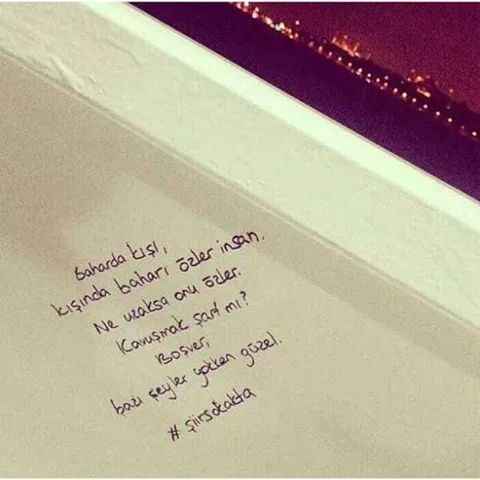 Baharda kışı,
kışında baharı özler insan.
Ne uzaksa onu özler.
Kavuşmak şart mı?
Boşver,
bazı şeyler yokken güzel.
# şiirsokakta